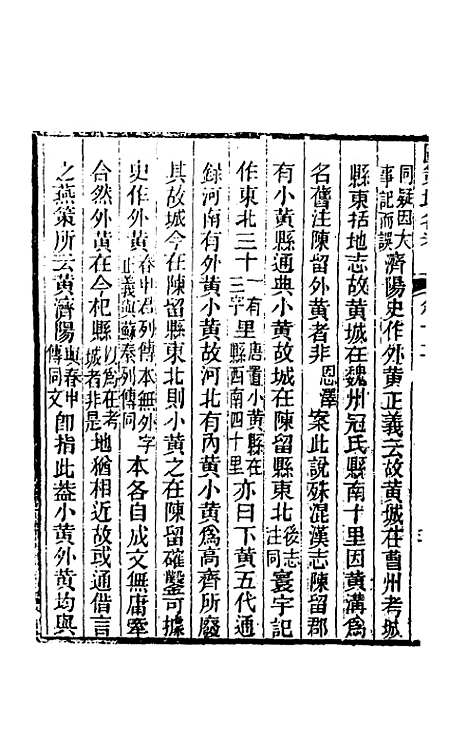 同疑因大事記而誤濟陽史作外黃正義云故黃城在曹州考城
縣東括地志故黃城在魏州冠氏縣南十里因黃溝爲
名舊注陳留外黃者非恩澤案此說殊混漢志陳留郡
有小黃縣通典小黃故城在陳留縣東北後志注同寰宇記
作東北三十一有三字里唐置小黃縣在縣西南四十里亦曰下黃五代通
錄河南有外黃小黃故河北有內黃小黃爲高齊所廢
其故城今在陳留縣東北則小黃之在陳留確鑿可據
史作外黃春申君列傳本無外字正義與蘇秦列傳同本各自成文無庸牽
合然外黃在今杞縣以爲在考城者非是地猶相近故或通借言
之燕策所云黃濟陽與春申傳同文卽指此蓋小黃外黃均與